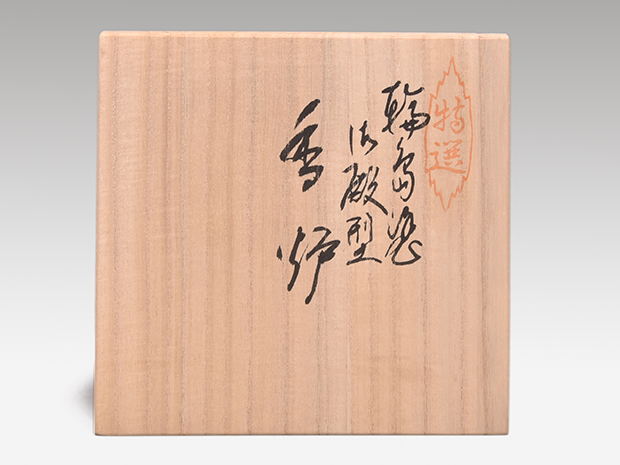 特選
輪島塗
御殿型
香炉